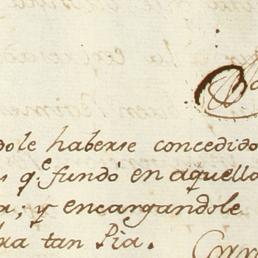 dole haberse concedido
qe. fundó en aquella
a; y encargandole
bra tan Pia.